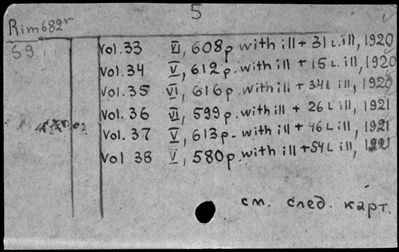 5
Rim682r
S9
Vol. 33 VI, 608 p. with ill + 31 L. ill, 1920
Vol. 34 VI, 612 p. with ill + 15 L. ill, 1920
Vol. 35 VI, 616 p. with ill + 34 L. ill, 1920
Vol. 36 VI, 599 p. with ill + 26 L ill, 1921
Vol. 37 V, 613 p. with ill + 46 L ill, 1921
Vol 38 V, 580 p. with ill + 54 L ill, 1921
см. след. карт.